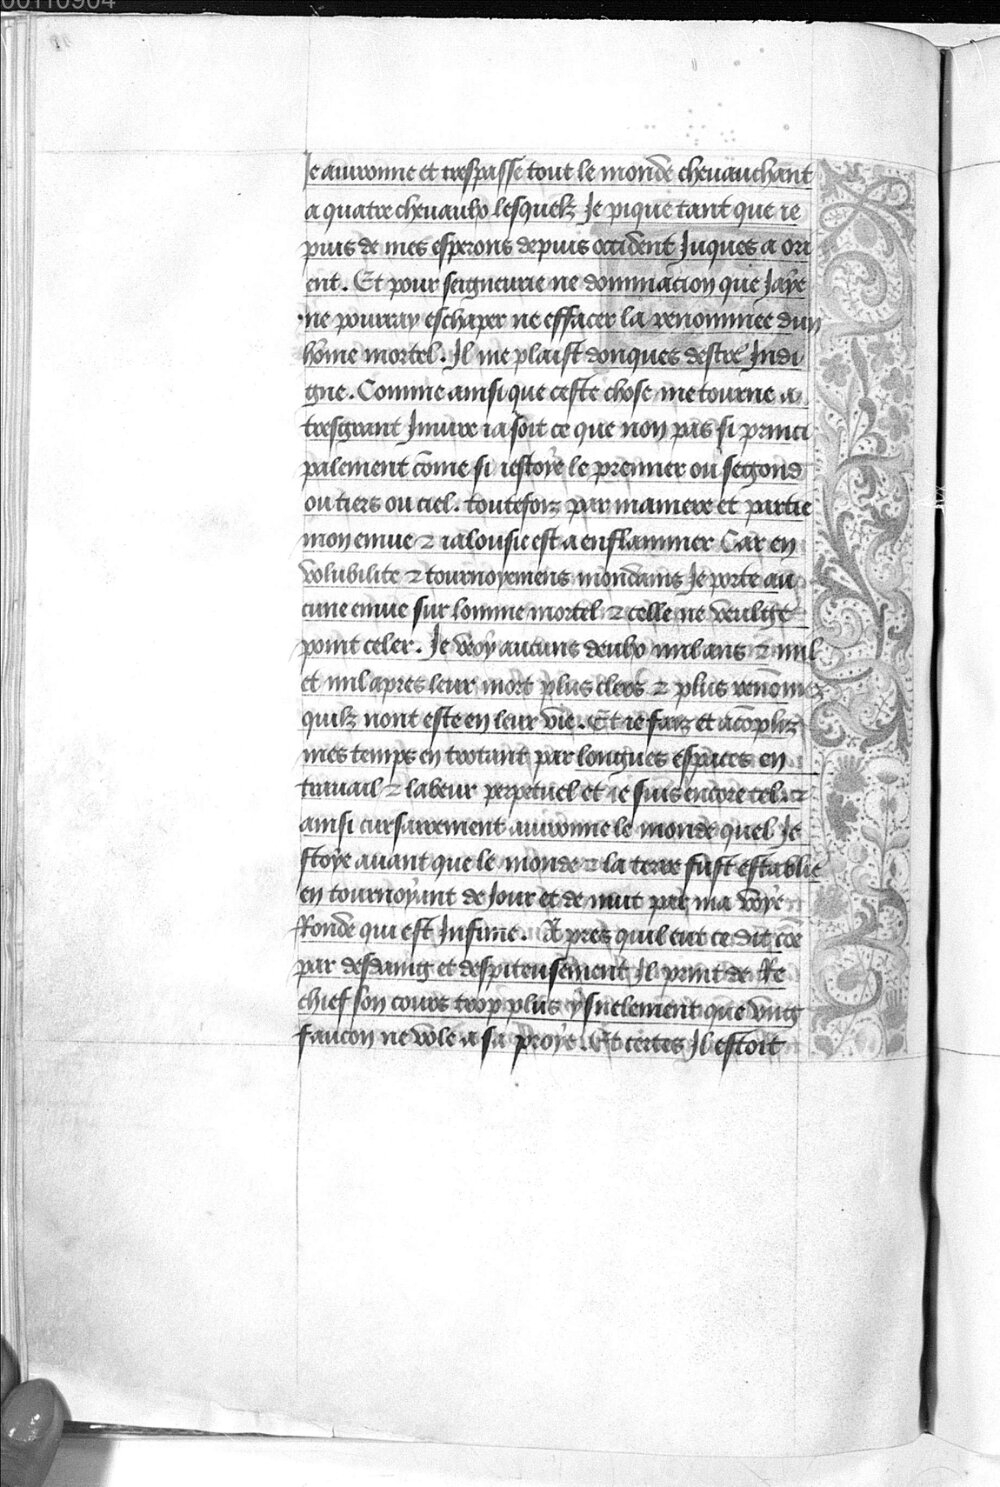 00110904
Je auironne et trespasse tout le monde cheuauchant
a quatre cheuaulx lesquelz Je pique tant que ie
puis de mes esperons depuis occident Juques a ori
ent. Et pour seigneurie ne dominacion que Jaye
ne pourray eschaper ne effacer la renommee dun
hõme mortel. Il me plaist donques destre Indi
gne. Comme ainsi que ceste chose me tourne a
tresgrant Iniure ia soit ce que non pas si princi
palement cõme si iestoye le premier ou segond
ou tiers ou ciel. toutefoiz par maniere et partie
mon enuie ⁊ ialousie est a enflammer Car en
volubilite ⁊ tournoyemens mondains Je porte au
cune enuie sur lomme mortel ⁊ celle ne veulge
point celer. Je voy aucuns deulx mil ans ⁊ mil
et mil apres leur mort plus clers ⁊ plus renõmez
quilz nont este en leur vie. Et ie faiz et acõpliz
mes temps en trotant par longues espaces en
trauail ⁊ labeur perpetuel et ie suis encore tel ⁊
ainsi cursairement auironne le monde quel Je
stoye auant que le monde ⁊ la terre fust establie
en tournoyant de Jour et de nuit par ma voye
Ronde qui est Infinie. Apres quil eut ce dit cõe
par desdaing et despiteusement Il print de Re
chief son cours trop plus ysnelement que vng
faucon ne vole a sa proye. Et certes Il estoit